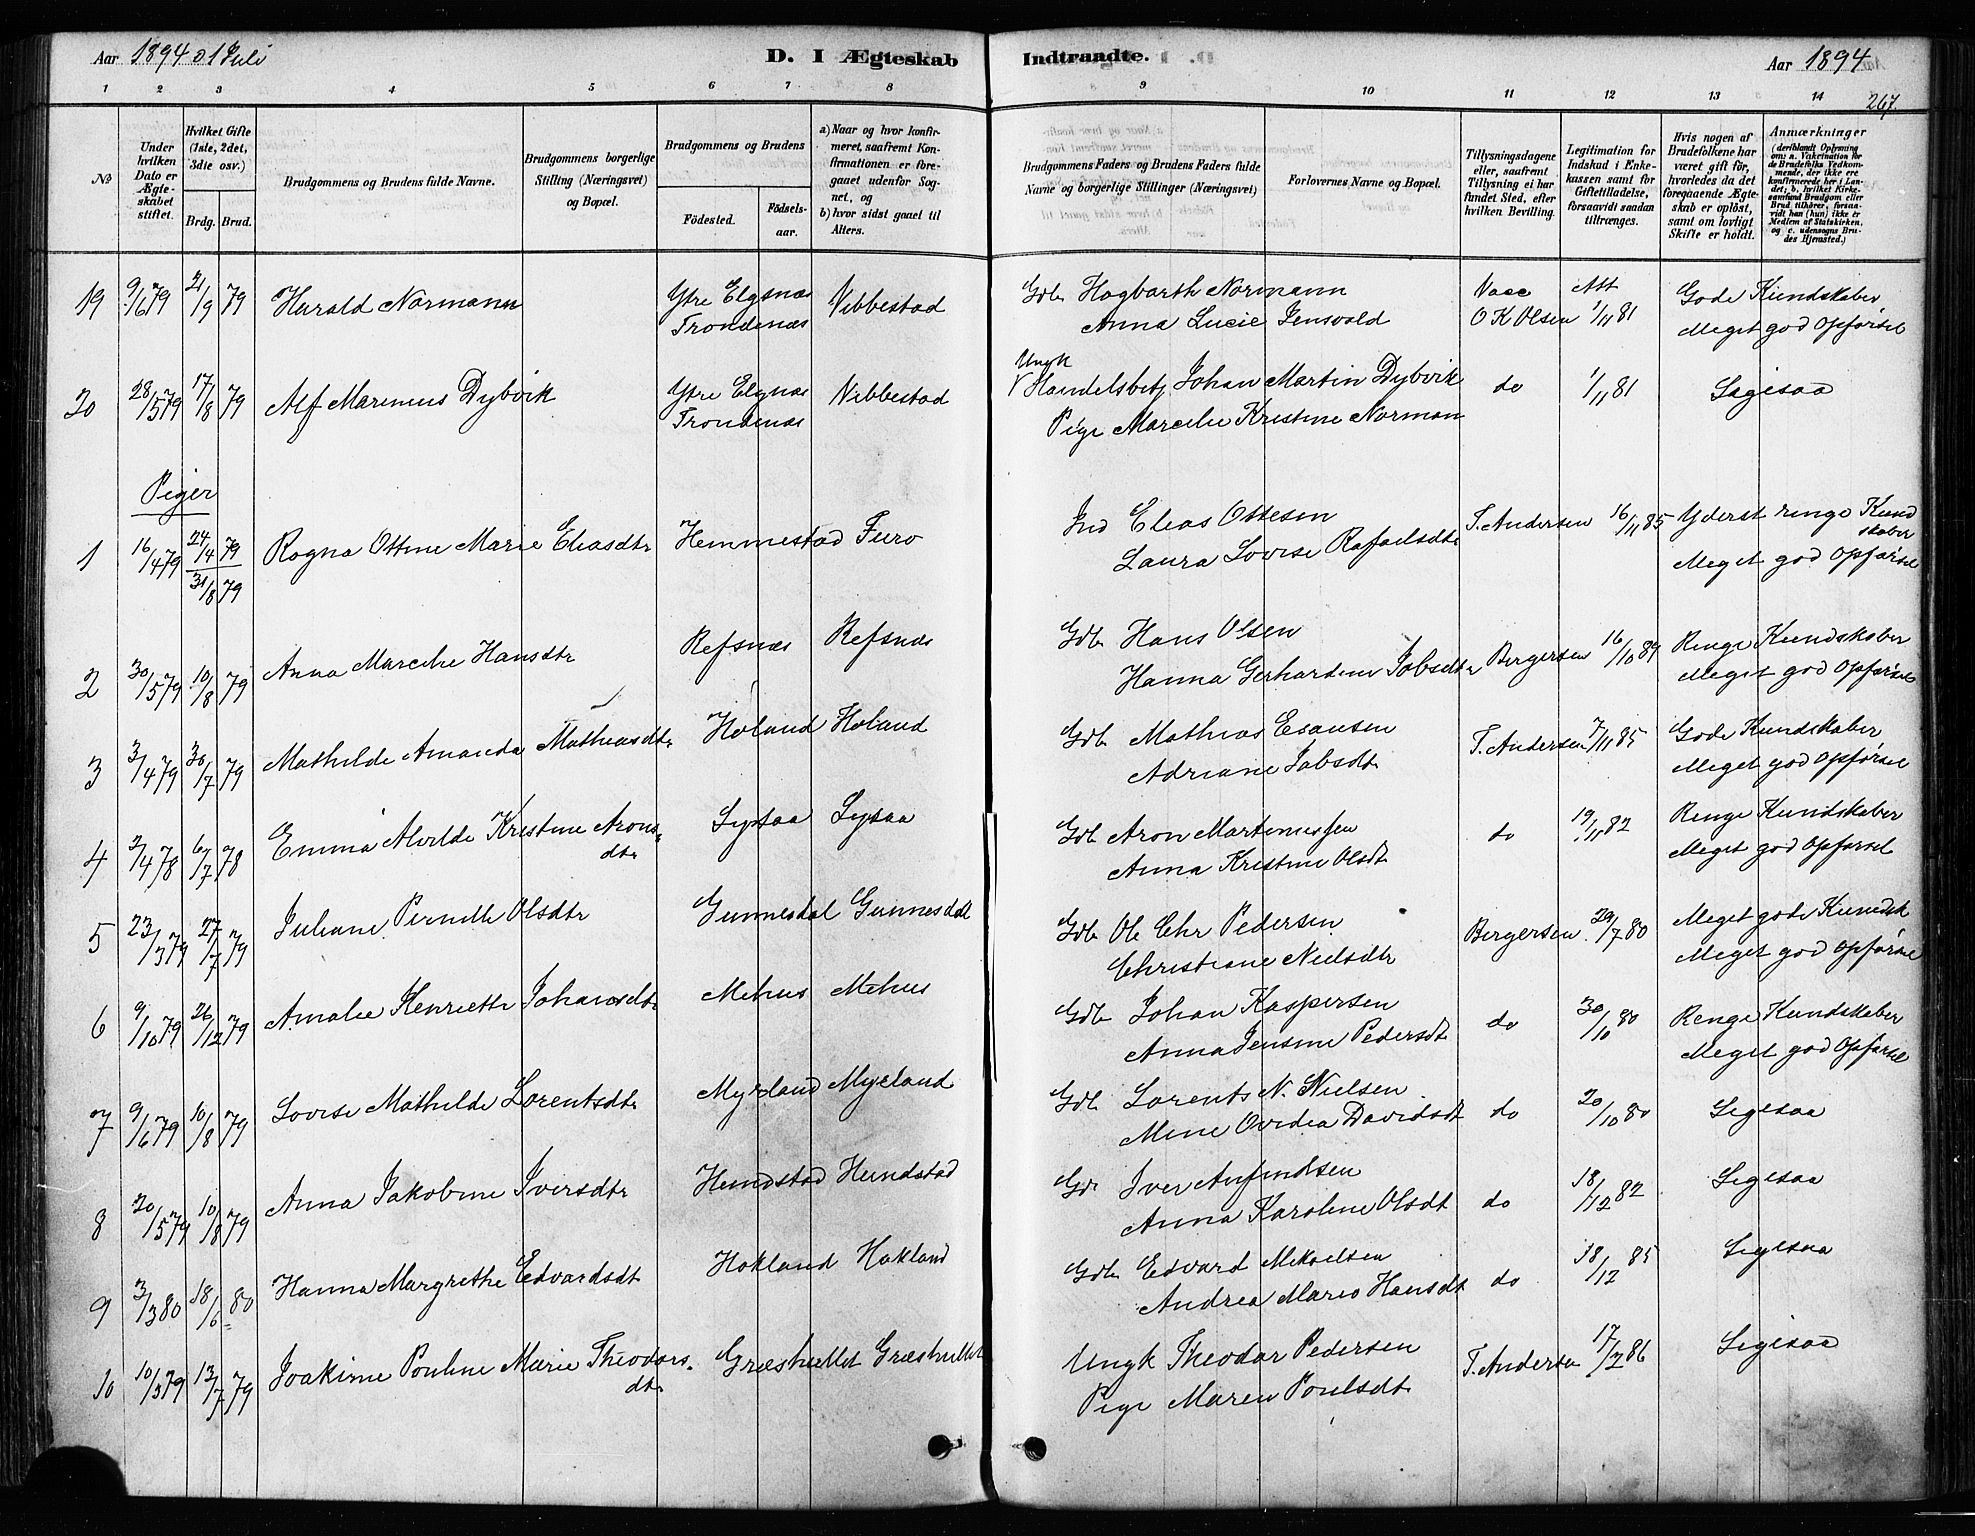 Aar 1894 01 Juli
D. I Ægteskab
Indtraadte.
Aar 1894
1 2 3 4 5 6 7 8 9 10 11 12 13 14
267.
No
Under hvilken Dato er Ægteskabet stiftet.
Hvilket Gifte (1ste, 2det, 3die osv.)
Brdg. Brud.
Brudgommens og Brudens fulde Navne.
Brudgommens borgerlige Stilling (Næringsvei) og Bopæl.
Brudgommens og Brudens
Fødested.
Fødselsaar.
a) Naar og hvor konfirmeret, saafremt Konfirmationen er foregaaet udenfor Sognet, og
b) hvor sidst gaaet til Alters.
Brudgommens Faders og Brudens Faders fulde Navne og borgerlige Stillinger (Næringsvei)
Forlovernes Navne og Bopæl.
Tillysningsdagene eller, saafremt Tillysning ei har fundet Sted, efter hvilken Bevilling.
Legitimation for Indskud i Enkekassen samt for Giftetilladelse, forsaavidt saadan tiltrænges.
Hvis nogen af Brudefolkene har været gift før, hvorledes da det foregaaende Ægteskab er opløst, samt om lovligt Skifte er holdt.
Anmærkninger (deriblandt Oplysning om: a. Vakcination for de Brudefolks Vedkommende, der ikke ere konfirmerede her i Landet; b. hvilket Kirkesamfund Brudgom eller Brud tilhører, forsaavidt han (hun) ikke er Medlem af Statskirken, og c. udensogns Brudes Hjemsted.)
19 9/6 79 21/9 79 Harald Normann Ytre Elgsnæs Vibbestad Gdb Hagbarth Normann Vacc Att Gode Kundskaber
Trondenæs Anna Lucie Jensvold O K Olsen 1/11 81 Meget god Opførsel
Ungk
20 28/5 79 17/8 79 Alf Marinius Dybvik Ytre Elgnæs Vibbestad Handelsbetj Johan Martin Dybvik do 1/11 81 Ligesaa
Trondenæs Pige Marcelie Kristine Norman
Piger
1 16/4 79 24/4 79 Ragna Ottine Marie Eliasdtr Hemmestad Furö Ind Elias Ottesen T. Andersen 16/11 85 Yderst ringe Kundskaber
31/8 79 Laura Lovise Rafaelsdtr Meget god Opførsel
2 30/5 79 10/8 79 Anna Marcelie Hansdtr Refsnæs Refsnæs Gdb Hans Olsen Bergersen 16/10 89 Ringe Kundskaber
Hanna Gerhardine Jabsdtr Meget god Opførsel
3 3/4 79 30/7 79 Mathilde Amanda Mathiasdtr Holand Holand Gdb Mathias Esausen T. Andersen 7/11 85 Gode Kundskaber
Adriane Jabsdtr Meget god Opførsel
4 2/4 78 6/7 78 Emma Alvilde Kristine Aronsdtr Lysaa Lysaa Gdb Aron Martinussen do 19/11 82 Ringe Kundskaber
Anna Kristine Olsdt Meget god Opførsel
5 23/3 79 27/7 79 Juliane Pernille Olsdtr Gunnesdal Gunnesdal Gdb Ole Chr Pedersen Bergersen 29/7 80 Meget gode Kundsk
Christiane Nielsdtr Meget god Opførsel
6 9/10 79 26/12 79 Amalie Henriette Johansdtr Mehus Mehus Gdb Johan Kaspersen do 30/10 80 Ringe Kundskaber
Anna Jensine Pedersdtr Meget god Opførsel
7 9/6 79 10/8 79 Lovise Mathilde Lorentsdtr Myrland Myrland Gdb Lorents N. Nielsen do 20/10 80 Ligesaa
Mine Ovidia Davidsdt
8 20/5 79 10/8 79 Anna Jakobine Iversdtr Hundstad Hundstad Gdr Iver Anfindsen do 18/12 82 Ligesaa
Anna Karoline Olsdt
9 3/3 80 18/6 80 Hanna Margrethe Edvardsdt Hokland Hokland Gdb Edvard Mikaelsen do 18/12 85 Ligesaa
Andrea Maria Hansdt
10 10/3 79 13/7 79 Joakime Pouline Marie Theodorsdtr Græshullet Græshullet Ungk Theodor Pedersen T. Andersen 17/7 86 Ligesaa
Pige Maren Poulsdt